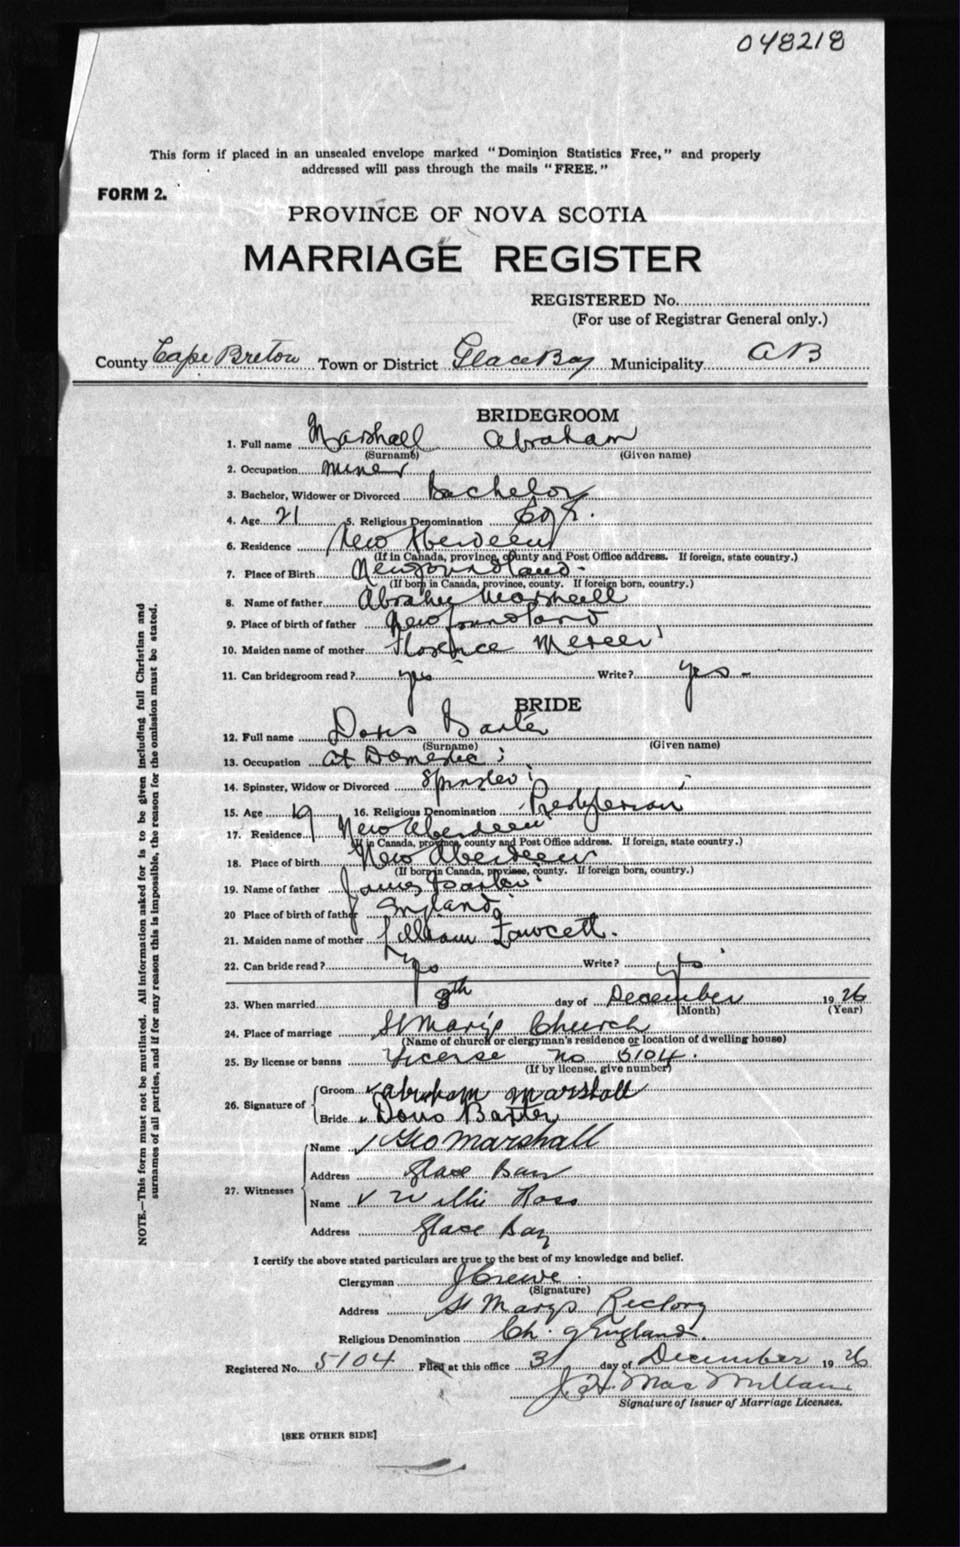 048218
This form if placed in an unsealed envelope marked "Dominion Statistics Free," and properly
addressed will pass through the mails "FREE."
FORM 2.
PROVINCE OF NOVA SCOTIA
MARRIAGE REGISTER
REGISTERED No.
(For use of Registrar General only.)
County Cape Breton Town or District Glace Bay Municipality
BRIDEGROOM
1. Full name Marshall Abraham
(Surname) (Given name)
2. Occupation miner
3. Bachelor, Widower or Divorced Bachelor
4. Age 21 5. Religious Denomination
6. Residence New Aberdeen
(If in Canada, province, county and Post Office address. If foreign, state country.)
7. Place of Birth Newfoundland
(If born in Canada, province, county. If foreign born, country.)
8. Name of father Abraham Marshall
9. Place of birth of father Newfoundland
10. Maiden name of mother Florence Mercer
11. Can bridegroom read? yes Write? yes
BRIDE
12. Full name Doris Baxter
(Surname) (Given name)
13. Occupation at Domestic
14. Spinster, Widow or Divorced Spinster
15. Age 19 16. Religious Denomination Presbyterian
17. Residence New Aberdeen
(If in Canada, province, county and Post Office address. If foreign, state country.)
18. Place of birth New Aberdeen
(If born in Canada, province, county. If foreign born, country.)
19. Name of father James Baxter
20 Place of birth of father England
21. Maiden name of mother Lilliam Fawcett.
22. Can bride read? yes Write? yes
23. When married 8th day of December 1926
(Month) (Year)
24. Place of marriage St Mary's Church
(Name of church or clergyman's residence or location of dwelling house)
25. By license or banns License no 5104.
(If by license, give number)
26. Signature of Groom Abraham Marshall
Bride Doris Baxter
27. Witnesses Name Geo Marshall
Address Glace Bay
Name Willie Ross
Address Glace Bay
I certify the above stated particulars are true to the best of my knowledge and belief.
Clergyman J Crewe
(Signature)
Address St Marys Rectory
Religious Denomination Ch. of England.
Registered No. 5104 Filed at this office 31 day of December 1926
J. H. MacMillan
Signature of Issuer of Marriage Licenses.
[SEE OTHER SIDE]
NOTE.—This form must not be mutilated. All information asked for is to be given including full Christian and
surnames of all parties, and if for any reason this is impossible, the reason for the omission must be stated.